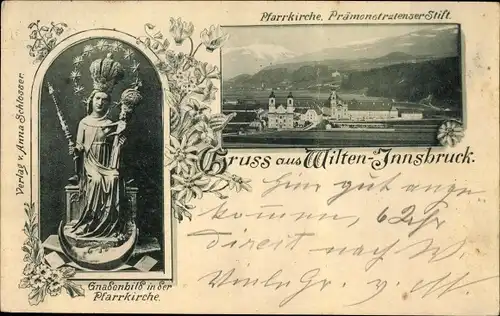 Pfarrkirche, Prämonstratenser Stift.
Verlag v. Anna Schlosser.
Gruss aus Wilten-Innsbruck.
Gnadenbild in der
Pfarrkirche.
gut ange
kommen,
direct nach